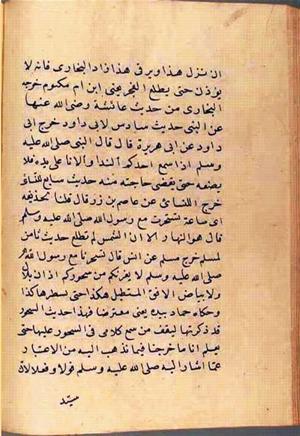 ان نزل هذا ويرقى هذا زاد البخارى فانه لا
يؤذن حتى يطلع الفجر يعنى ابن ام مكتوم خرجه
البخارى من حديث عائشة رضى الله عنها
عن النبى حديث سادس لابى داود خرج ابى
داود عن ابى هريرة قال قال النبى صلى الله عليه
وسلم اذا سمع احدكم النداء والاناء على يده فلا
يضعه حتى يقضى حاجته منه حديث سابع للنسائى
خرج النسائى عن عاصم بن زر قال قلنا لحذيفة
اى ساعة تسحرت مع رسول الله صلى الله عليه وسلم
قال هو النهار الا ان الشمس لم تطلع حديث ثامن
لمسلم خرج مسلم عن انس قال تسحرنا مع رسول الله
صلى الله عليه وسلم لا يغرنكم من سحوركم اذان بلال
ولا بياض الافق المستطيل هكذا حتى يستطير هكذا
وحكاه حماد بيده يعنى معترضا فهذا احاديث السحور
قد ذكرتها ليقف من سمع كلامى فى السحور عليها حتى
يعلم انا ما خرجنا فيما نذهب اليه من الاعتبار
عما اشار اليه صلى الله عليه وسلم قولا وفعلا لاة